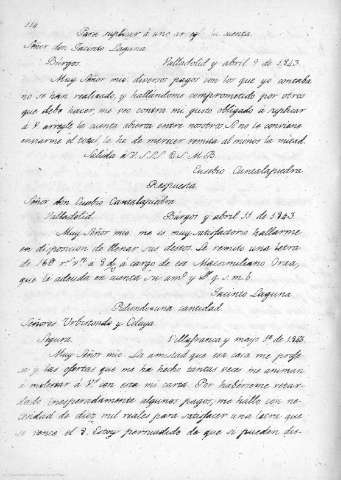 Para suplicar á uno arregle la cuenta.
Señor don Jacinto Laguna
Búrgos. Valladolid y abril 9 de 1843.
Muy Señor mio: diversos pagos con los que yo contaba
no se han realizado, y hallándome comprometido por otros
que debo hacer, me veo contra mi gusto obligado a suplicar
á V. arregle la cuenta abierta entre nosotros. Si no le conviene
enviarme el total, le he de merecer remita al menos la mitad.
Saluda á V. S. S. S. Q. S. M. B.
Eusebio Cantalapiedra
Respuesta
Señor don Eusebio Cantalapiedra
Valladolid. Búrgos y abril 11 de 1843.
Muy Señor mio: me es muy satisfactorio hallarme
en disposicion de llenar sus deseos. Le remito una letra
de á cargo de don Maximiliano Oraa,
que le adeudo en cuenta su am.º y s. q. s. m. b.
Jacinto Laguna
Pidiendo una cantidad.
Señores Urbiztondo y Celaya
Segura. Villafranca y mayo 1º de 1843.
Muy Señor mio: La amistad que tan cara me profe
sa y las ofertas que me ha hecho tantas veces me animan
á molestar á V. con esta mi carta. Por habérseme retar
dado inesperadamente algunos pagos, me hallo con ne
cesidad de diez mil reales para satisfacer una letra que
se vence el 8. Estoy persuadido de que si pueden dis-